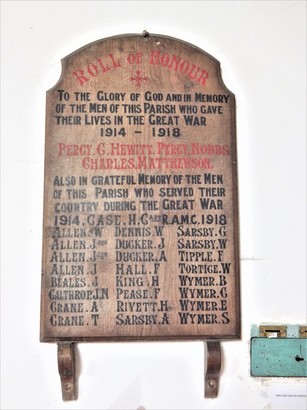 ROLL OF HONOUR
TO THE GLORY OF GOD AND IN MEMORY
OF THE MEN OF THIS PARISH WHO GAVE
THEIR LIVES IN THE GREAT WAR
1914 - 1918
PERCY. G. HEWITT. PERCY. NOBBS.
CHARLES. MATTHEWSON.
ALSO IN GRATEFUL MEMORY OF THE MEN
OF THIS PARISH WHO SERVED THEIR
COUNTRY DURING THE GREAT WAR
1914. CASE. H. R.A.M.C. 1918
ALLEN. W DENNIS. W SARSBY. G
ALLEN. J DUCKER. J SARSBY. W
ALLEN. J DUCKER. A TIPPLE. F
ALLEN. J HALL. F TORTICE. W
BEALES. J KING. H WYMER. B
CALTHROP. J.N PEASE. F WYMER. G
CRANE. A RIVETT. H WYMER. E
CRANE. T SARSBY. A WYMER. S